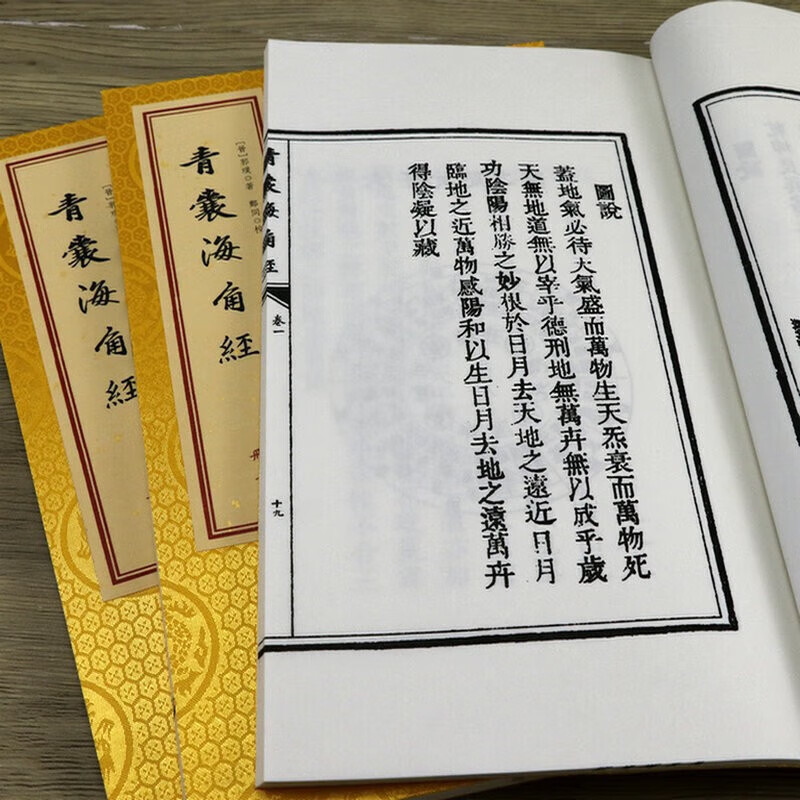 圖說
蓋地氣必待天氣盛而萬物生天炁衰而萬物死
天無地道無以宰乎德刑地無萬卉無以成乎歲
功陰陽相勝之妙很於日月去天地之遠近日月
臨地之近萬物感陽和以生日月去地之遠萬卉
得陰凝以藏
青囊海角經
卷一
十九
青囊海角經
[晉]郭璞◎著
鄭同◎校
青囊海角經
[晉]郭